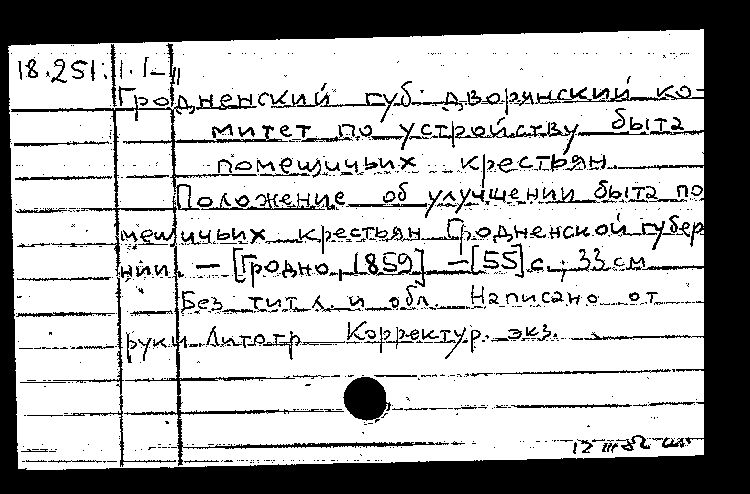 18.251.1.1-11
Гродненский губ. дворянский ко-
митет по устройству быта
помещичьих крестьян.
Положение об улучшении быта по
мещичьих крестьян Гродненской губер
нии. — [Гродно, 1859] — [55] с.; 33 см
Без тит л. и обл. Написано от
руки Литогр Корректур. экз.
12 III 82